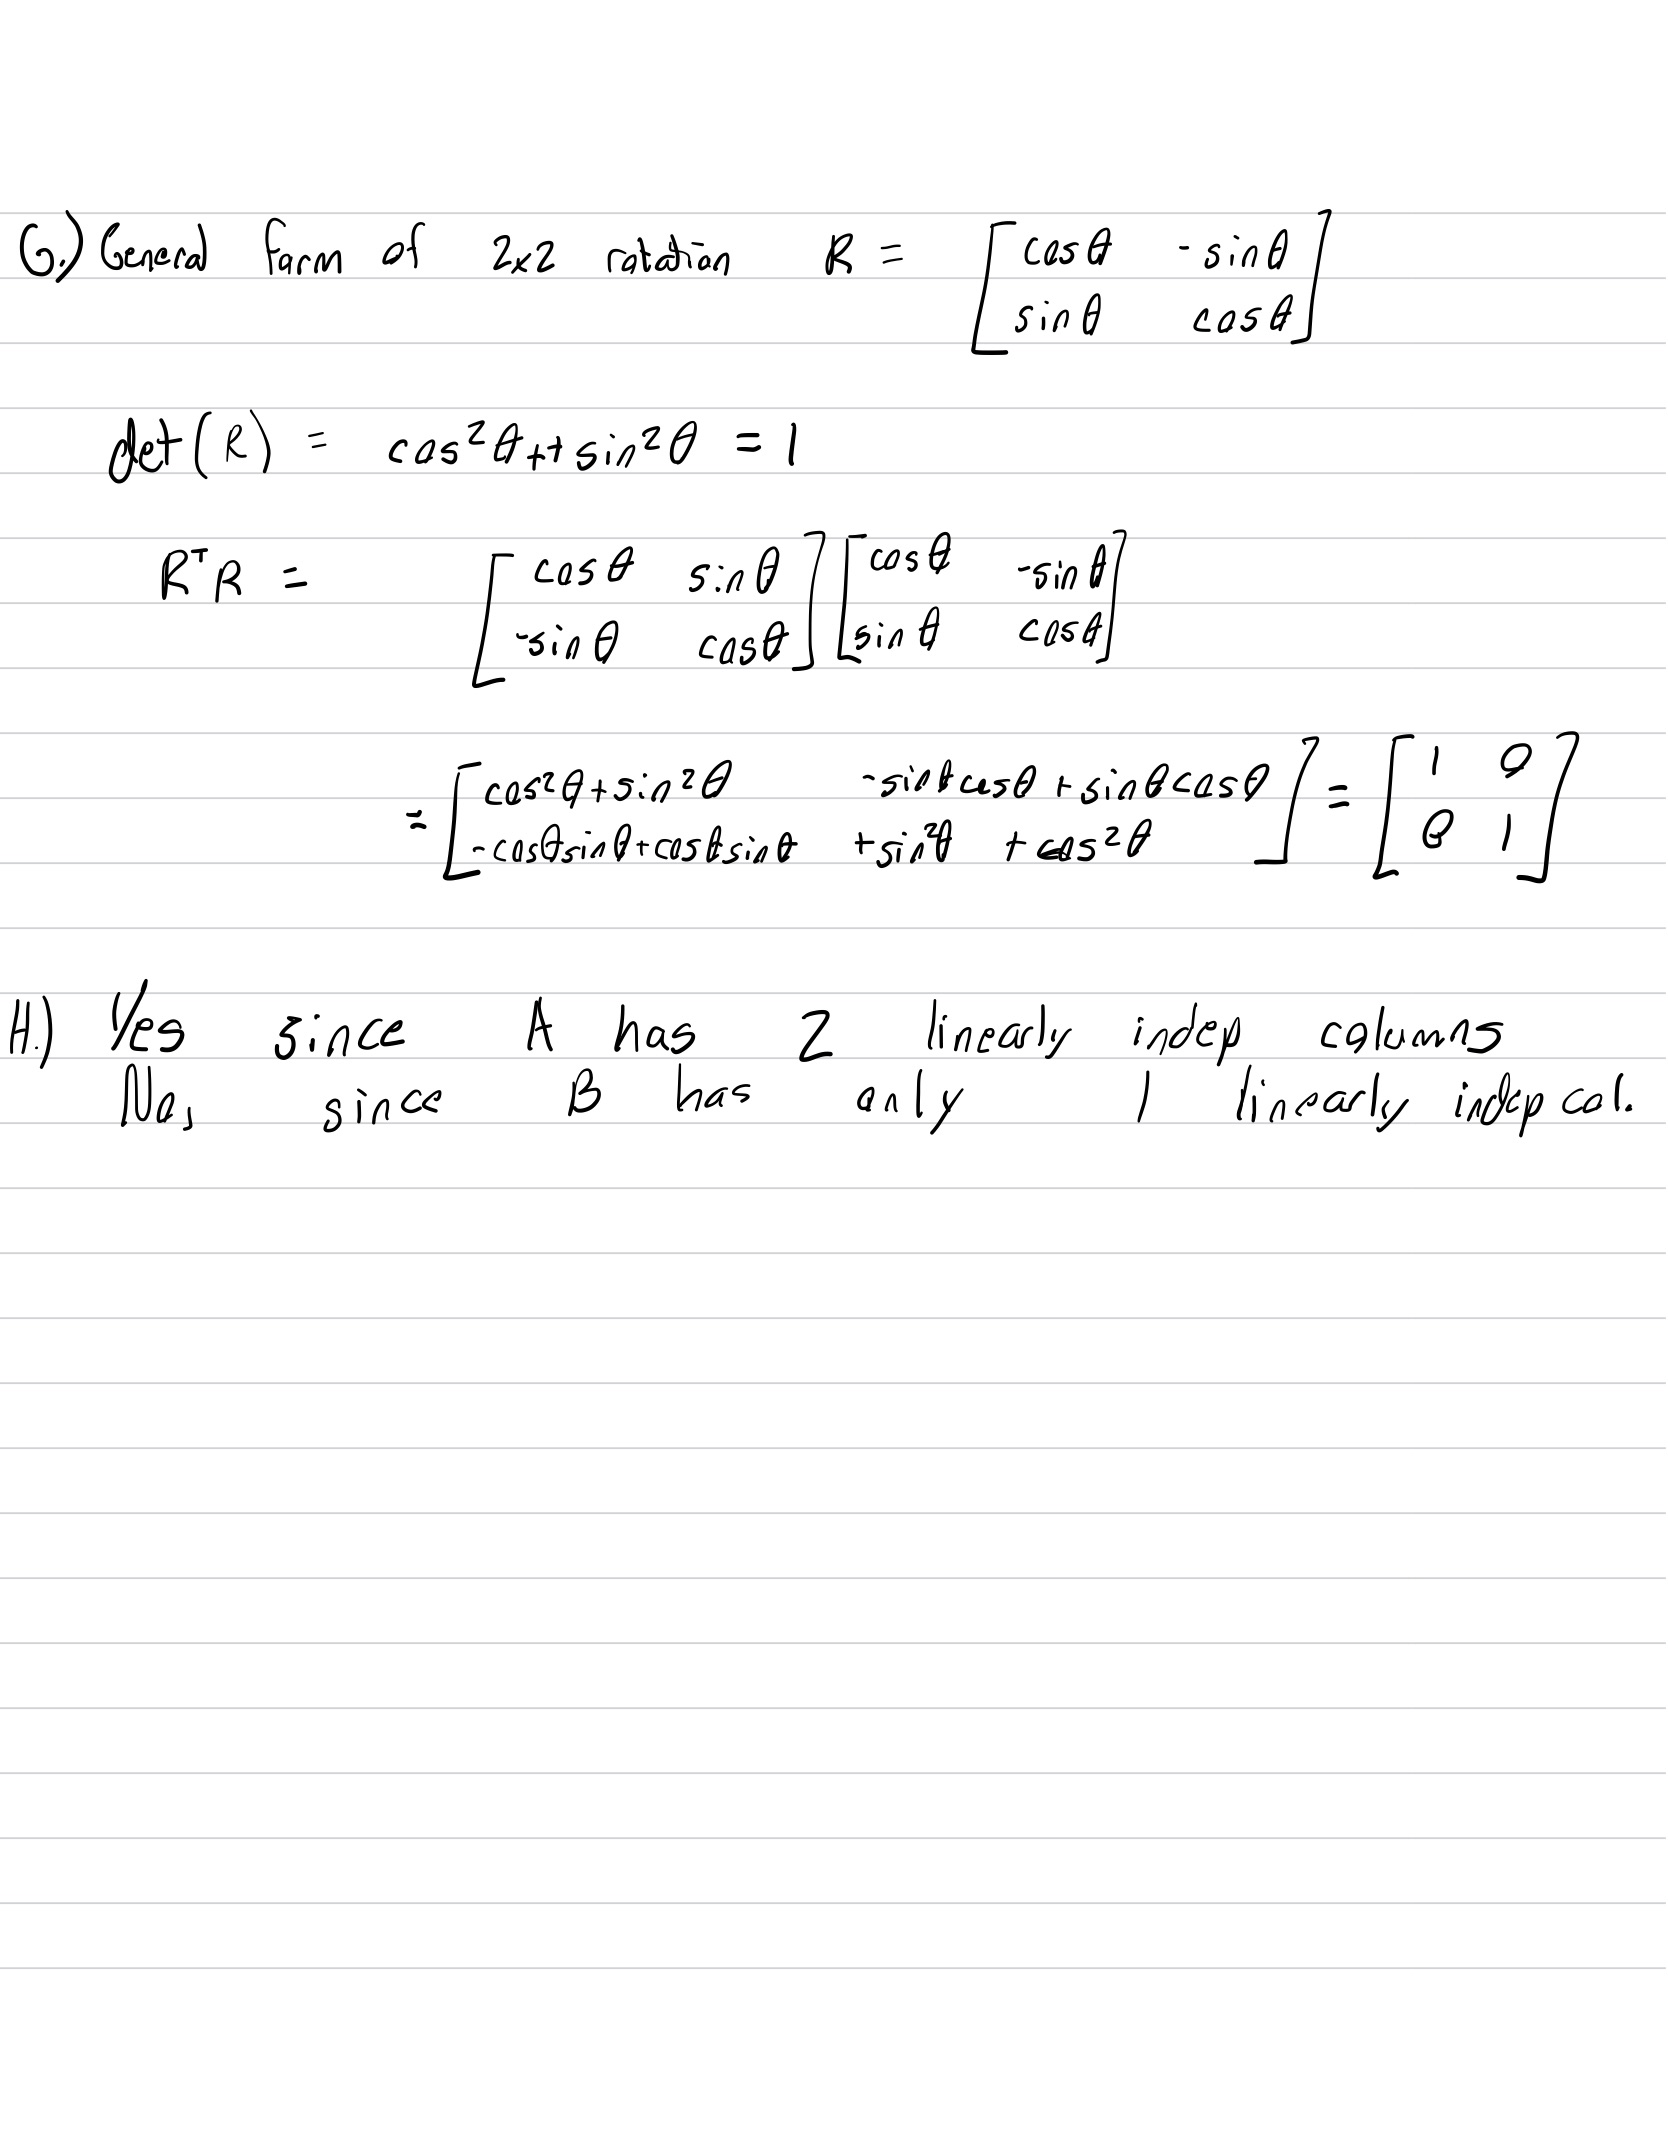 G.) General form of 2x2 rotation R = [cosθ -sinθ
sinθ cosθ]
det(R) = cos²θ ++ sin²θ = 1
RᵀR = [cosθ sinθ] [cosθ -sinθ]
[-sinθ cosθ] [sinθ cosθ]
= [cos²θ+sin²θ -sinθcosθ+sinθcosθ] = [1 0]
[-cosθsinθ+cosθsinθ +sin²θ +cos²θ] [0 1]
H.) Yes since A has 2 linearly indep columns
No, since B has only 1 linearly indep col.